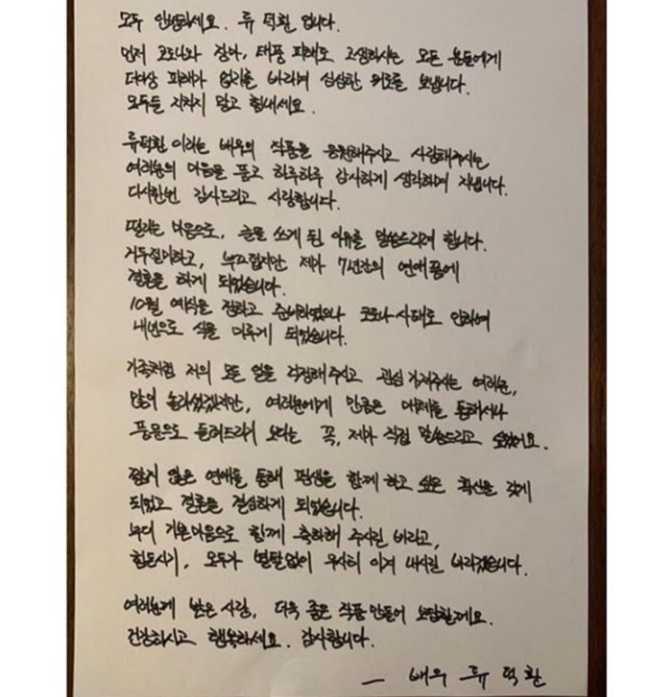 모두 안녕하세요. 류 덕환 입니다.
먼저 코로나와 장마, 태풍 피해로 고생하시는 모든 분들에게
더이상 피해가 없기를 바라며 심심한 위로를 보냅니다.
모두들 지치지 말고 힘내세요.
류덕환 이라는 배우의 작품을 응원해주시고 사랑해주시는
여러분의 마음을 품고 하루하루 감사하게 생각하며 지냅니다.
다시한번 감사드리고 사랑합니다.
떨리는 마음으로, 글을 쓰게 된 이유를 말씀드리려 합니다.
거두절미하고, 부끄럽지만 제가 7년간의 연애 끝에
결혼을 하게 되었습니다.
10월 예식을 잡고 준비하였으나 코로나 사태로 인하여
내년으로 식을 미루게 되었습니다.
가족처럼 저의 모든 일을 걱정해주시고 관심 가져주시는 여러분,
많이 놀라셨겠지만, 여러분에게 만큼은 매체를 통해서나
풍문으로 들려드리기 보다는 꼭, 제가 직접 말씀드리고 싶었어요.
짧지 않은 연애를 통해 평생을 함께 하고 싶은 확신을 갖게
되었고 결혼을 결심하게 되었습니다.
부디 기쁜마음으로 함께 축하해 주시길 바라고,
힘든시기, 모두가 별탈없이 무사히 이겨 내시길 바라겠습니다.
여러분께 받은 사랑, 더욱 좋은 작품 만들어 보답할게요.
건강하시고 행복하세요. 감사합니다.
— 배우 류 덕환